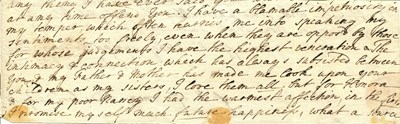 any thing I have ever said
at any time offend you. I have a blamable impetuosity in
my temper which often carries me into speaking my
sentiments too freely, even when they are opposed by those
for whose judgements I have the highest veneration. The
intimacy & connection which has always subsisted between
you & my Father & Mother has made me look upon your
children as my sisters, I love them all, but for Honora
& for my poor Nancy I had the warmest affection in the
I promise my self much future happiness, what a